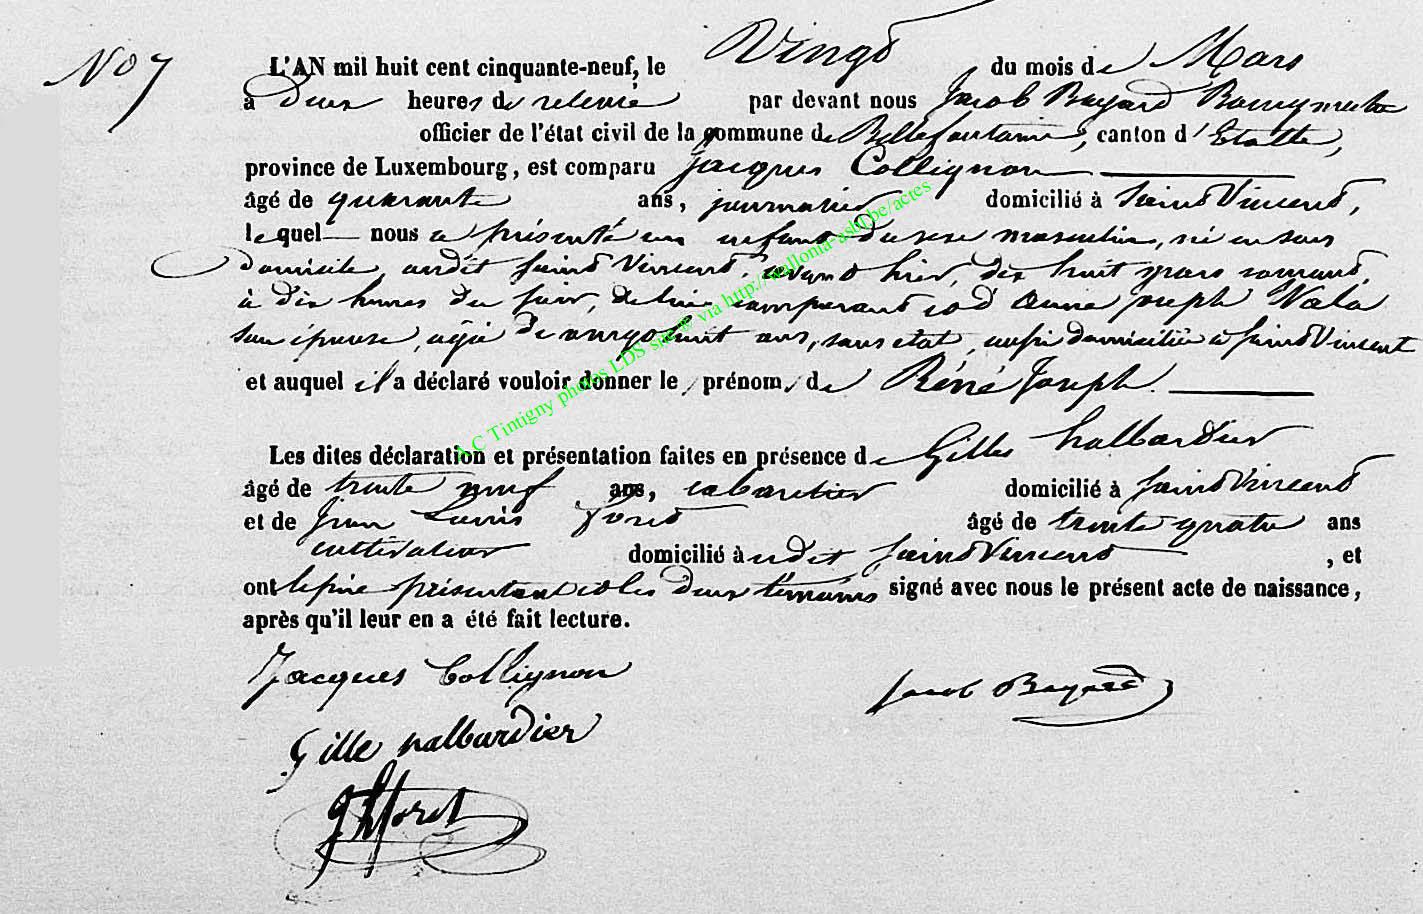 No 7
L'AN mil huit cent cinquante-neuf, le Vingt du mois de Mars
à deux heures de relevée par devant nous Jacob Bayard Bourgmestre
officier de l'état civil de la commune de Bellefontaine, canton d'Etalle,
province de Luxembourg, est comparu Jacques Collignon
âgé de quarante ans, journalier domicilié à Saint Vincent,
lequel nous a présenté un enfant du sexe masculin, né en son
domicile, audit Saint Vincent, avant hier, dix huit mars courant,
à dix heures du soir, de lui comparant et d'Anne Joseph
son épouse, agée de vingt huit ans, sans etat, aussi domiciliée à Saint Vincent
et auquel il a déclaré vouloir donner le prénom de Réné Joseph.
Les dites déclaration et présentation faites en présence de Gilles halbardier
âgé de trente neuf ans, cabaretier domicilié à Saint Vincent
et de Jean Louis foret âgé de trente quatre ans
cultivateur domicilié à udit Saint Vincent, et
ont le père présentant et les deux témoins signé avec nous le présent acte de naissance,
après qu'il leur en a été fait lecture.
Jacques Collignon
Jacob Bayard
Gille halbardier
foret
A.C Tintigny photos LDS site & via http://wallonia-asbl.be/actes